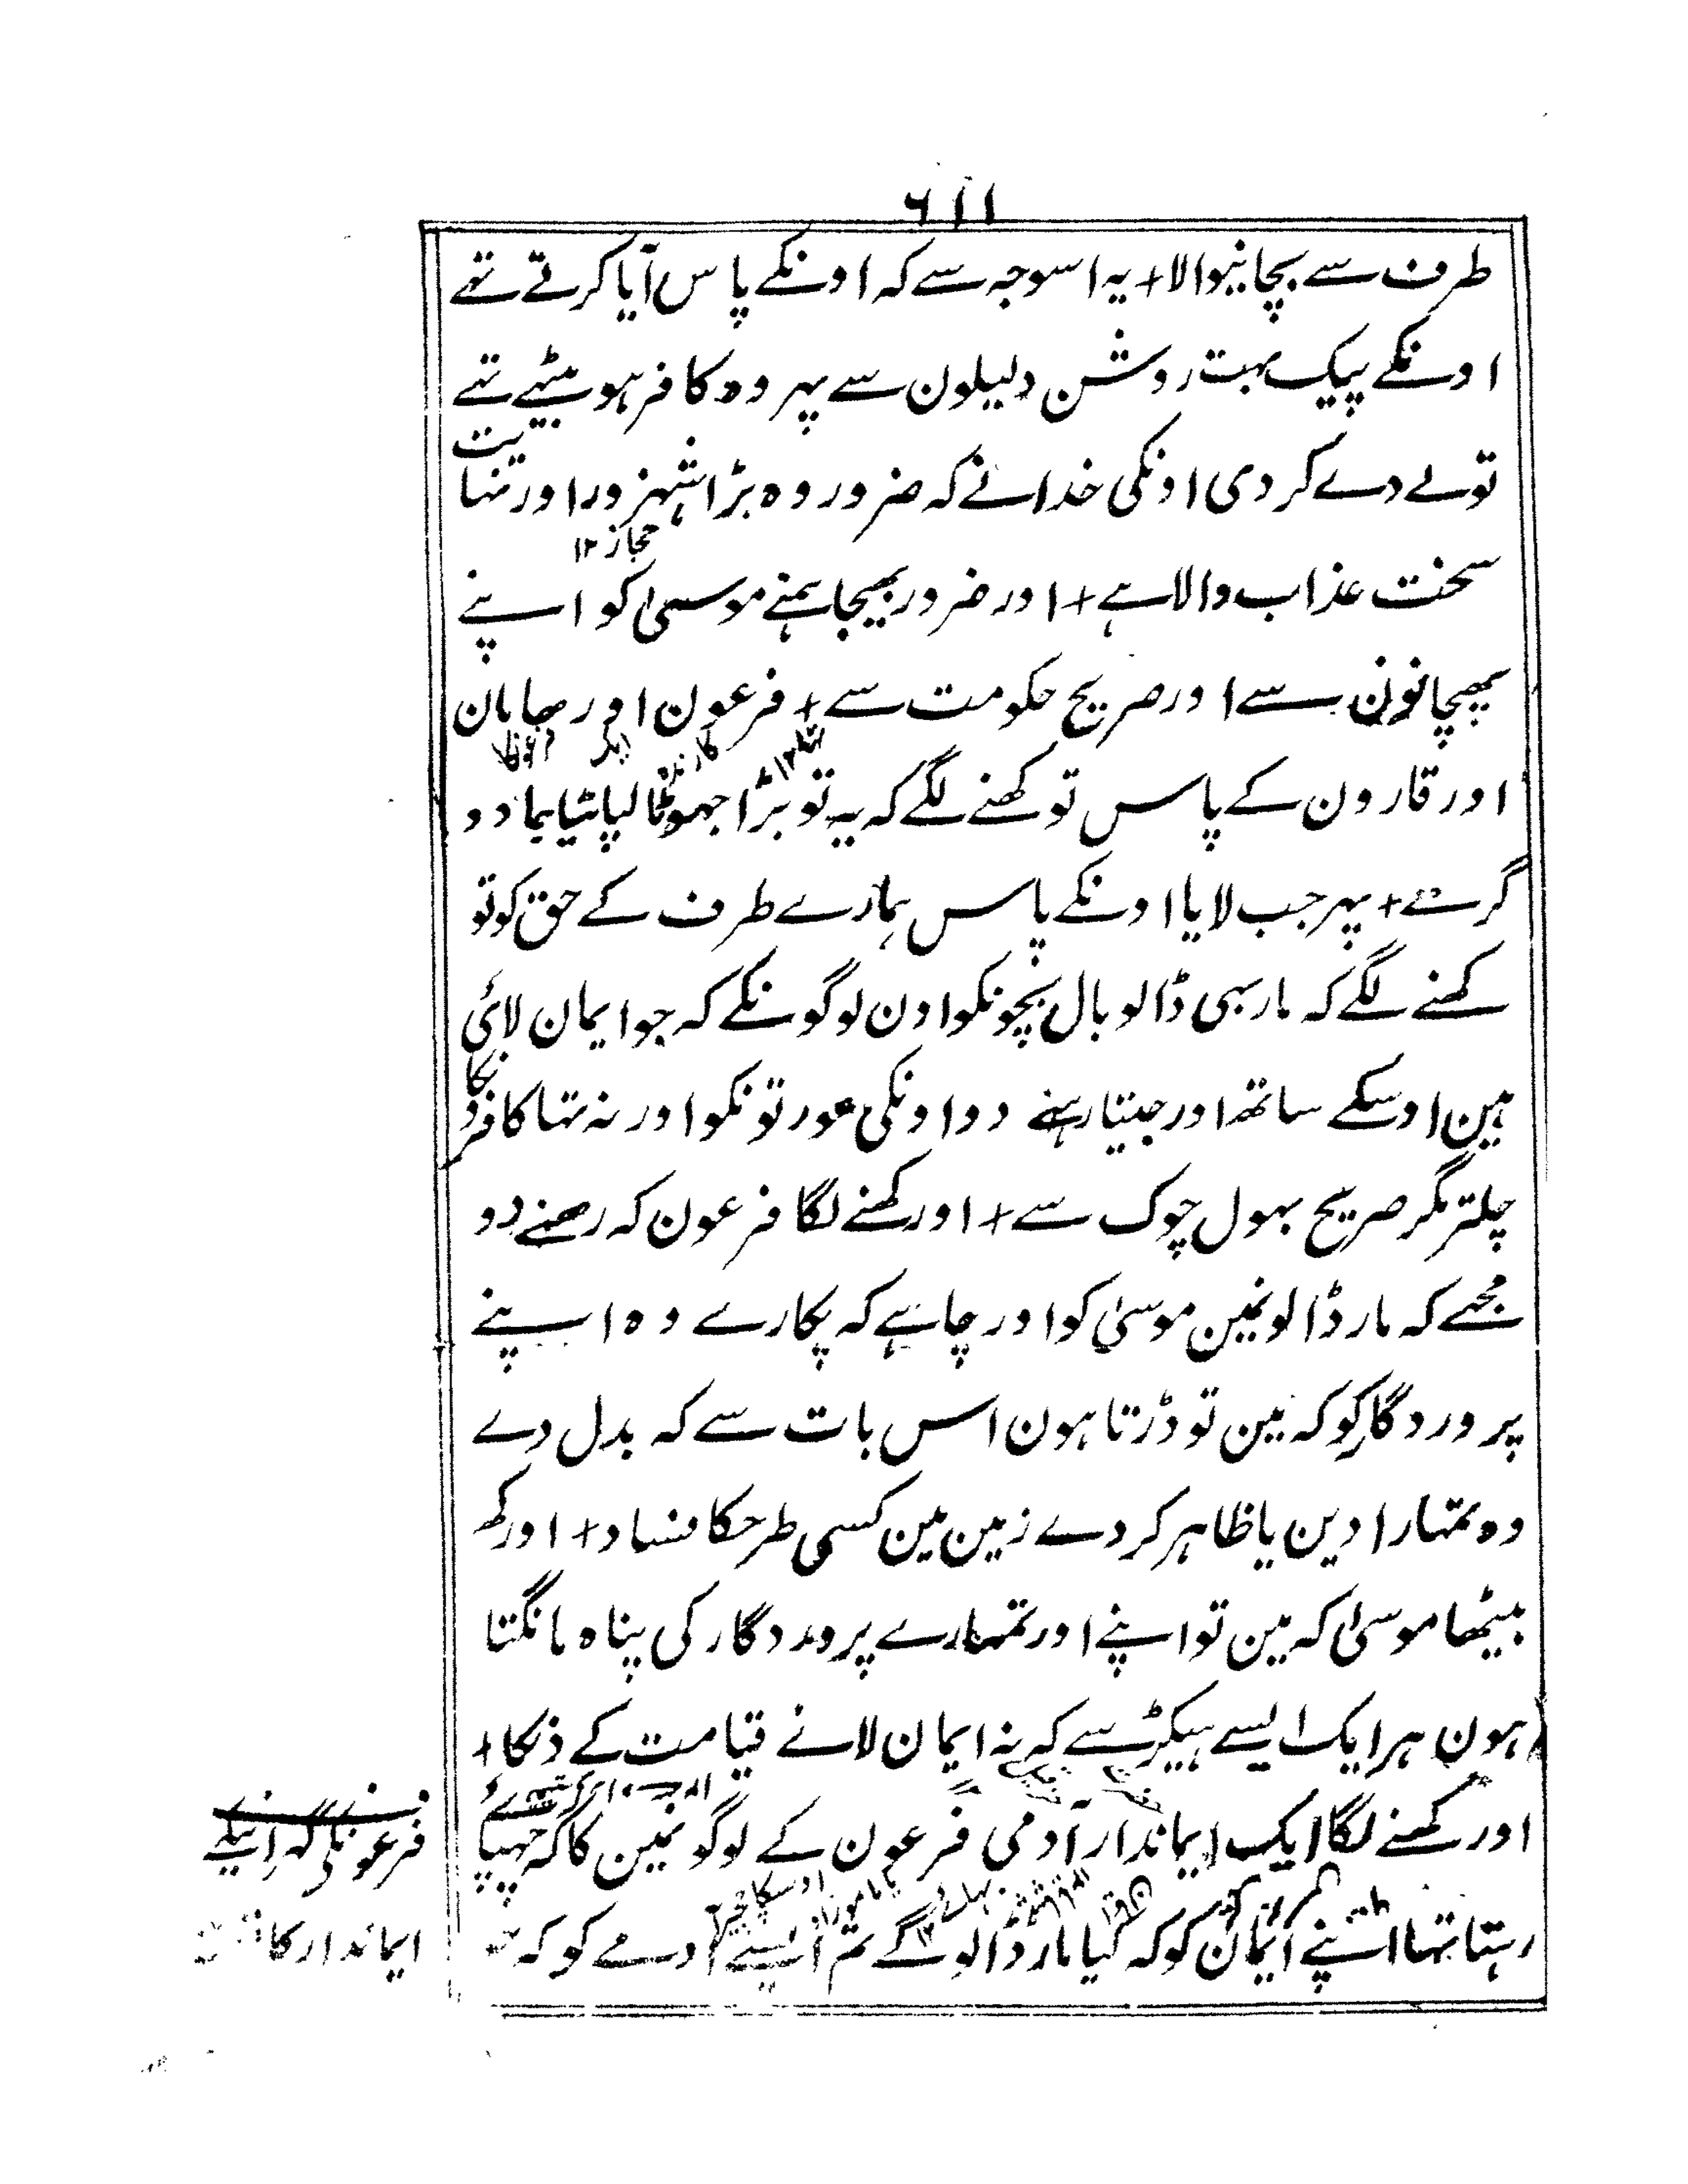 ۶۱۱
طرف سے بچانیوالا + یہ اسوجہ سے کہ اونکے پاس آیا کرتے تھے
اونکے پیک بہت روشن دلیلون سے پہر وہ کافر ہو بیٹھے تھے
تو لے دے کر دی اونکی خدانے کہ ضرور وہ بڑا شہزور اور نہایت
سخت عذاب والا ہے + اور ضرور بھیجا ہمنے موسیٰ کو اپنے
پھچانون سے اور صریح حکومت سے + فرعون اور ھامان
اور قارون کے پاس تو کھنے لگے کہ یہ تو بڑا جہوٹا لپاٹیا جادو
گر ہے + پہر جب لایا اونکے پاس ہمارے طرف کے حق کو تو
کھنے لگے کہ مار ہی ڈالو بال بچونکو اون لوگونکے کہ جو ایمان لائی
ہین اوسکے ساتھ اور جیتا رہنے دو اونکی عورتونکو اور نہ تہا کافرونکا
چلتر مگر صریح بہول چوک سے + اور کھنے لگا فرعون کہ رھنے دو
مجھے کہ مار ڈالو نمین موسیٰ کو اور چاہے کہ پکارے وہ اپنے
پروردگار کو کہ مین تو ڈرتا ہون اس بات سے کہ بدل دے
وہ تمھارا دین یا ظاہر کر دے زمین مین کسی طرحکا فساد + اور کھ
بیٹھا موسیٰ کہ مین تو اپنے اور تمھارے پروردگار کی پناہ مانگتا
ہون ہر ایک ایسے ہیکڑ سے کہ نہ ایمان لائے قیامت کے دنکا +
اور کھنے لگا ایک ایماندار آدمی فرعون کے لوگو نمین کا کہ چھپائے
رہتا تہا اپنے ایمان کو کہ کیا مار ڈالو گے تم ایسے آدمے کو کہ
حجاز ۱۲
فرعونکی گہرانیکے
ایماندار کا